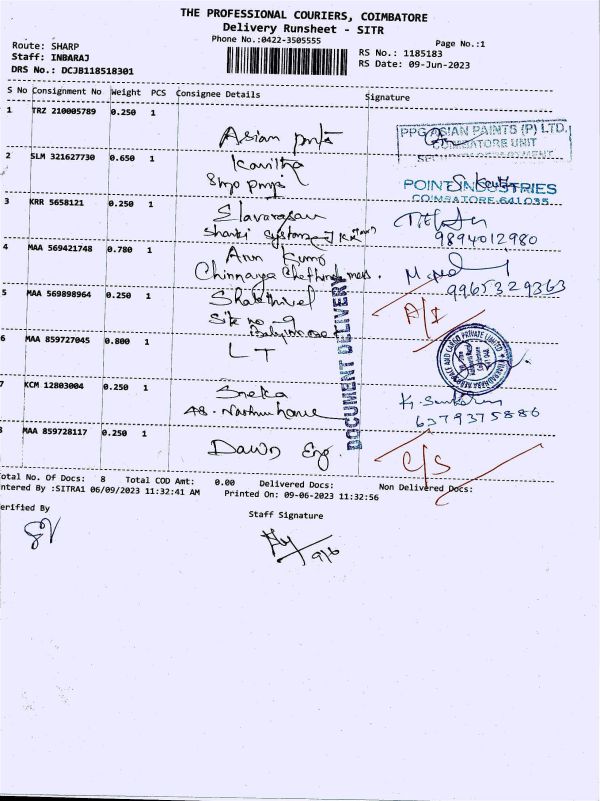 THE PROFESSIONAL COURIERS, COIMBATORE
Delivery Runsheet - SITR
Phone No.:0422-3505555
Page No.:1
Route: SHARP
RS No.: 1185183
Staff: INBARAJ
RS Date: 09-Jun-2023
DRS No.: DCJB118518301
S No Consignment No Weight PCS Consignee Details Signature
1 TRZ 210005789 0.250 1
Asian pnts
PPG ASIAN PAINTS (P) LTD.
COIMBATORE UNIT
2 SLM 321627730 0.650 1
Kavitha
POINT INDUSTRIES
COIMBATORE 641035
3 KRR 5658121 0.250 1
Elavarasan
Shanti
9894012980
4 MAA 569421748 0.780 1
Chinnaya
9965329363
5 MAA 569898964 0.250 1
Site no
A/I
DOCUMENT DELIVERY
6 MAA 859727045 0.800 1
LT
7 KCM 12803004 0.250 1
Sneka
house
6379375886
8 MAA 859728117 0.250 1
Dawn Eng.
C/S
Total No. Of Docs: 8 Total COD Amt: 0.00 Delivered Docs: Non Delivered Docs:
Entered By :SITRA1 06/09/2023 11:32:41 AM Printed On: 09-06-2023 11:32:56
Verified By
Staff Signature
9/6